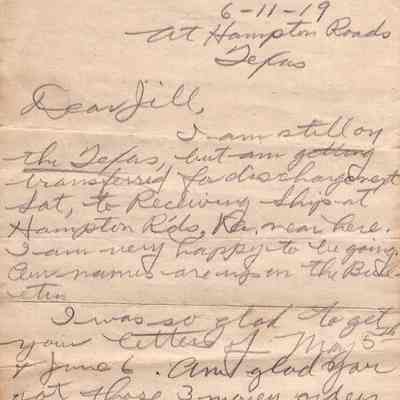 6-11-19
At Hampton Roads
Texas
Dear Jill,
I am still on
the Texas, but am getting
transferred for discharge next
Sat, to Receiving Ship at
Hampton Rds, Va, near here.
I am very happy to be going.
Our names are up in the Bull-
etin
I was so glad to get
your letters of May 5th
& June 6. Am glad you
got those 3 money orders